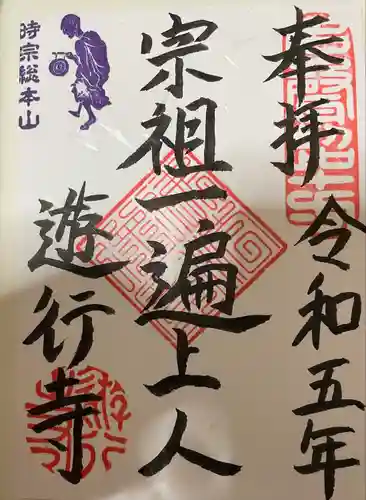 奉拝
令和五年
宗祖一遍上人
時宗総本山
遊行寺